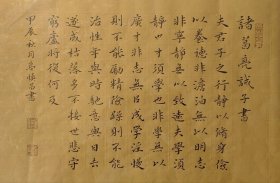 諸葛亮誡子書
夫君子之行靜以修身儉
以養德非澹泊無以明志
非寧靜無以致遠夫學須
靜也才須學也非學無以
廣才非志無以成學淫慢
則不能勵精險躁則不能
治性年與時馳意與日去
遂成枯落多不接世悲守
窮廬將復何及
甲辰秋月書